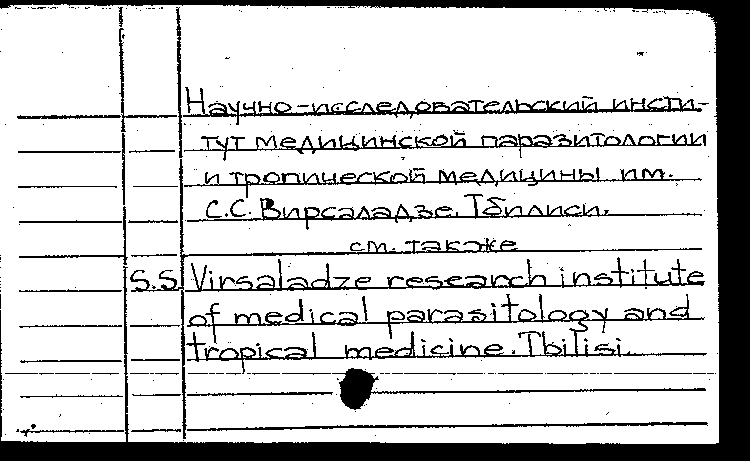 Научно-исследовательский инсти-
тут медицинской паразитологии
и тропической медицины им.
С.С. Вирсаладзе. Тбилиси.
см. также
S.S Virsaladze research institute
of medical parasitology and
tropical medicine. Tbilisi.